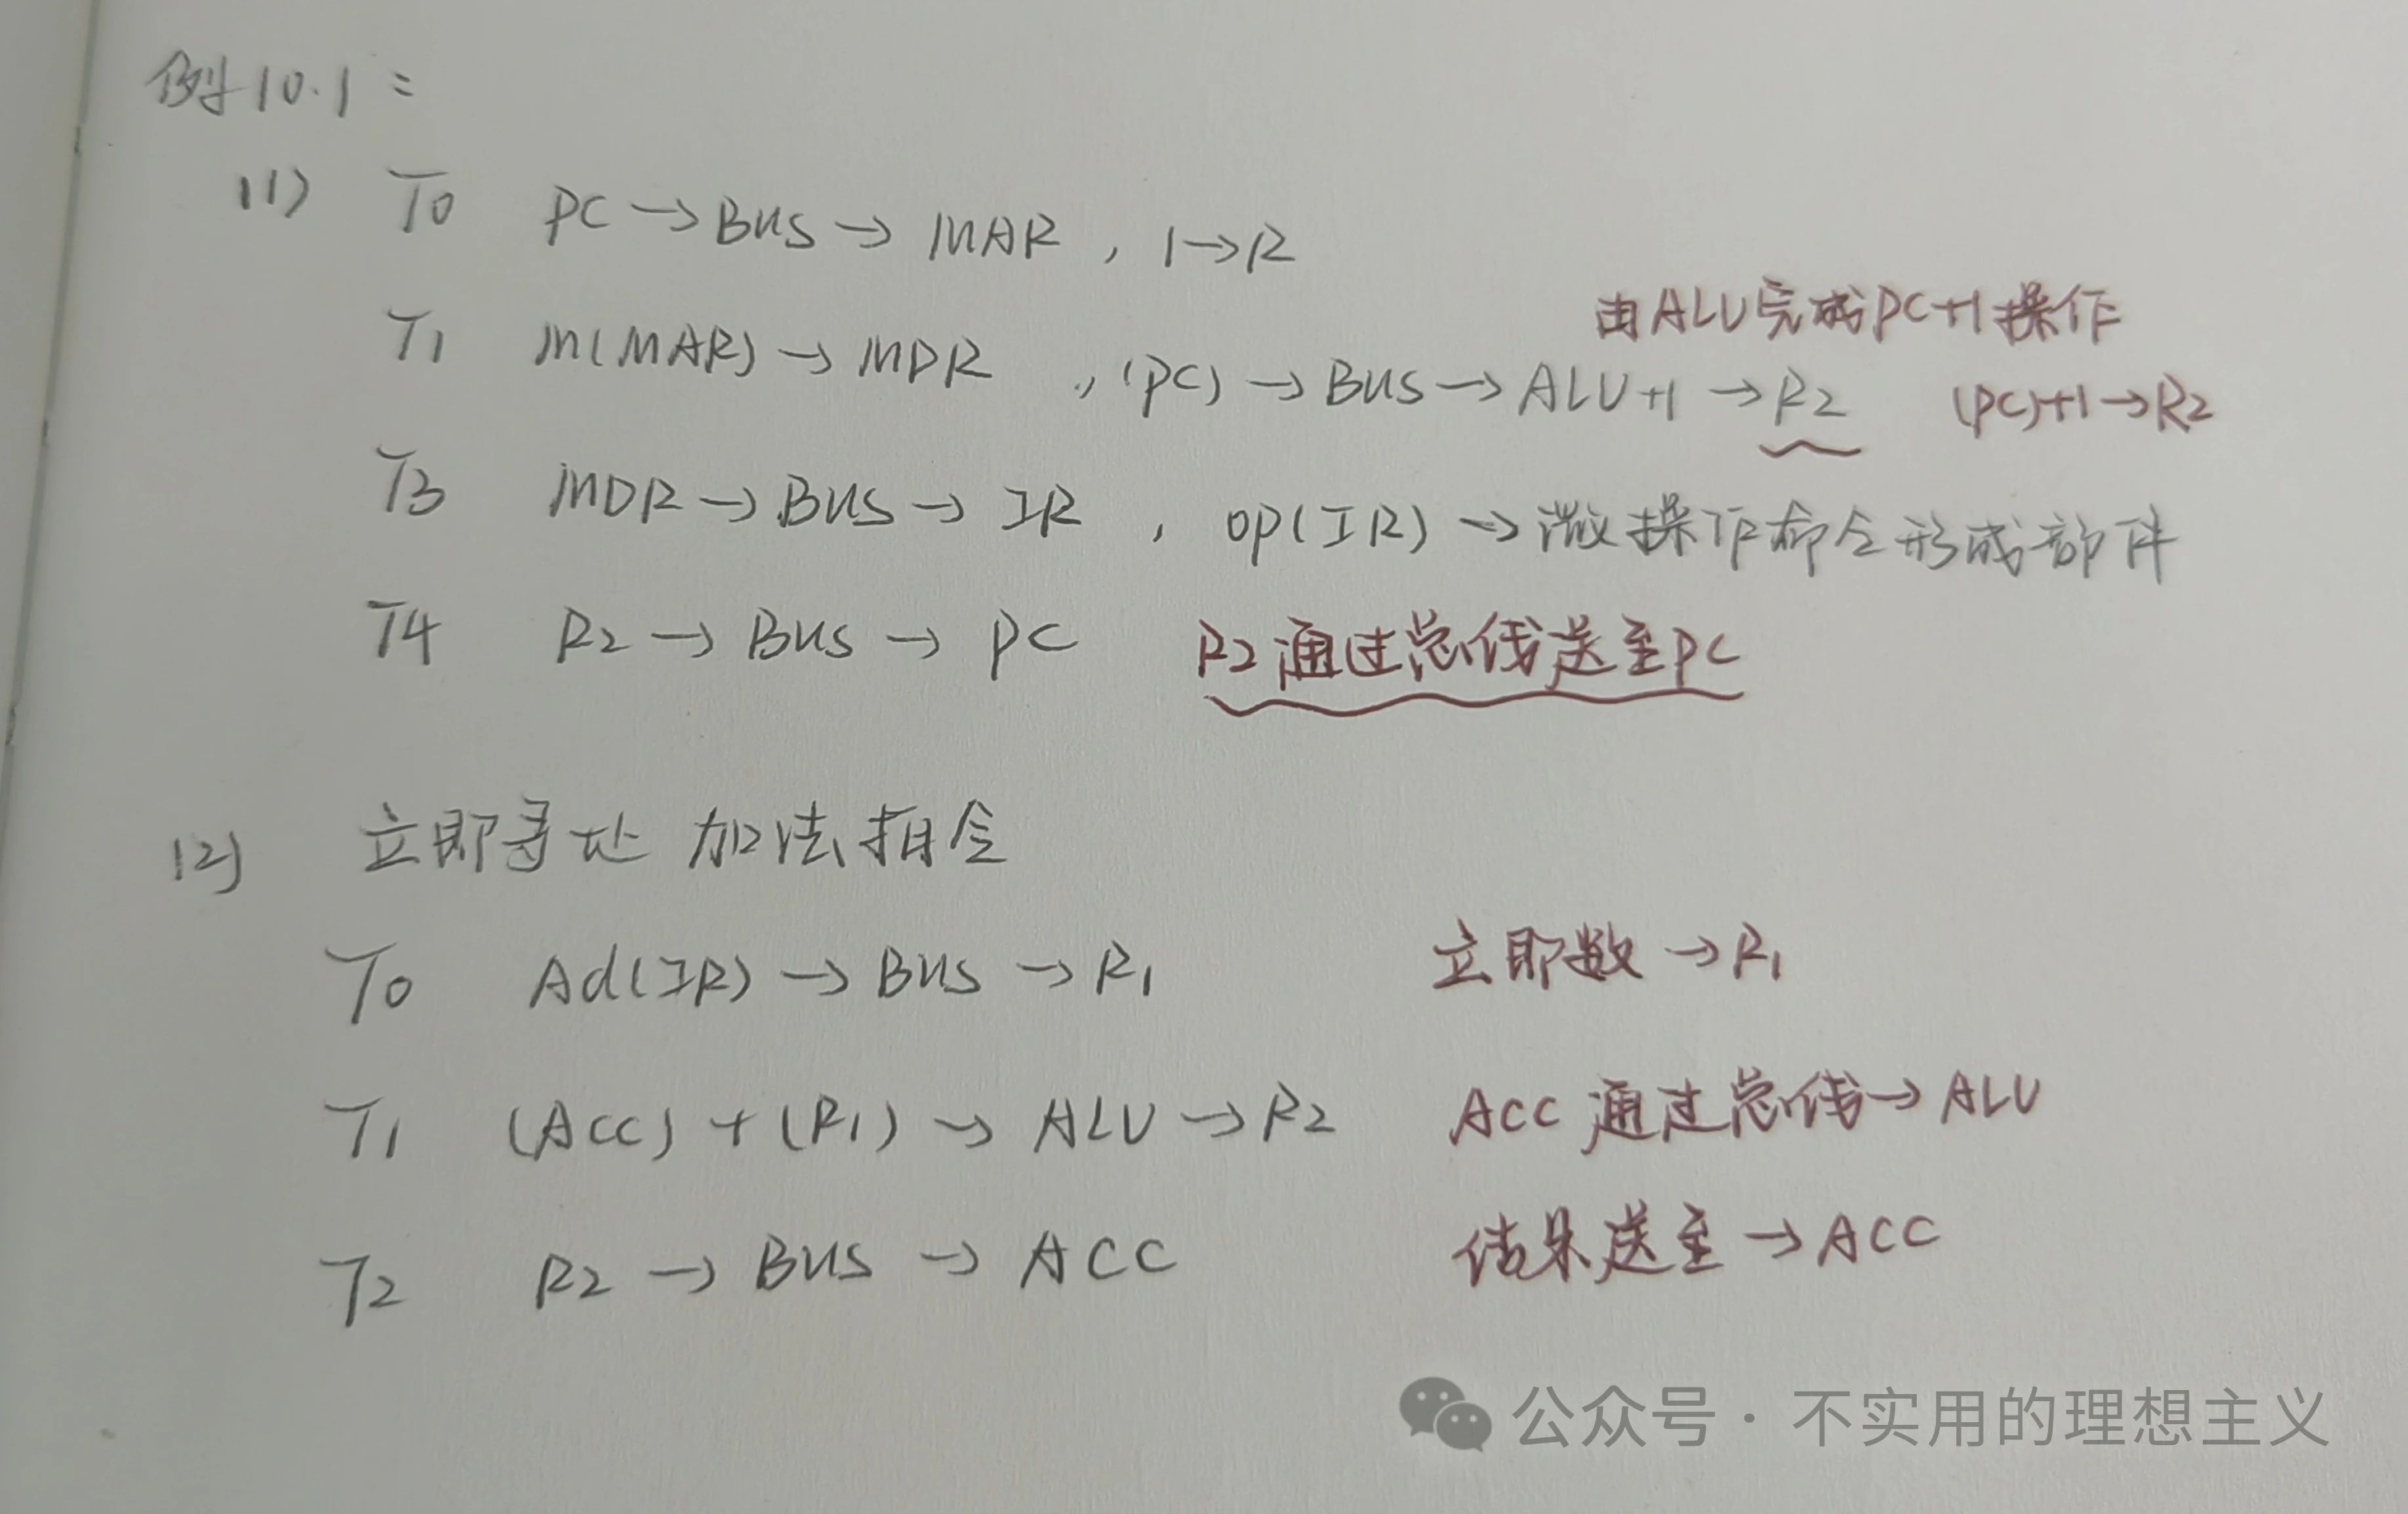 例10.1：
(1) T0 PC→BUS→MAR，1→R
由ALU完成PC+1操作
T1 M(MAR)→MDR ，(PC)→BUS→ALU+1→R2 (PC)+1→R2
T3 MDR→BUS→IR ，OP(IR)→微操作命令形成部件
T4 R2→BUS→PC R2通过总线送至PC
(2) 立即寻址 加法指令
T0 Ad(IR)→BUS→R1 立即数→R1
T1 (ACC)+(R1)→ALU→R2 ACC通过总线→ALU
T2 R2→BUS→ACC 结果送至→ACC
公众号·不实用的理想主义